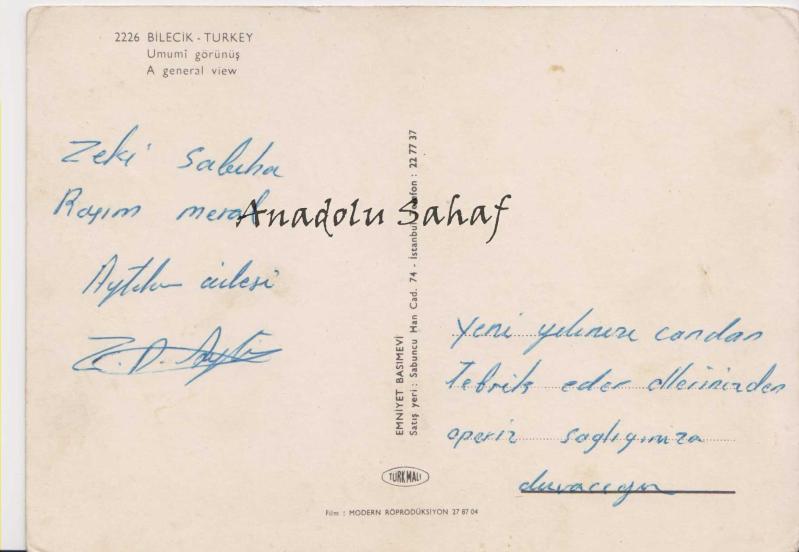 2226 BİLECİK - TURKEY
Umumî görünüş
A general view
Zeki Sabiha
Rasim meral
Anadolu Sahaf
ailesi
EMNİYET BASIMEVİ
Satış yeri : Sabuncu Han Cad. 74 - İstanbul Telefon : 22 77 37
yeni yılınızı candan
Tebrik eder ellerinizden
öperiz sağlığınıza
duvacıyız
TÜRK MALI
Film : MODERN RÖPRODÜKSİYON 27 87 04